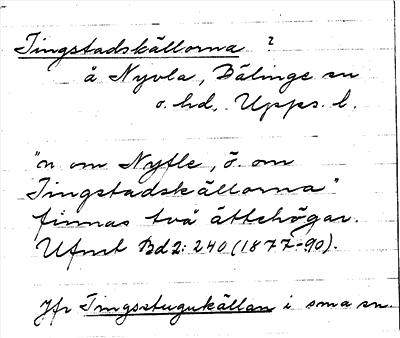 Tingstadskällorna ?
å Nyvla, Bälinge sn
o. hd. Upps. l.
"n om Nyfle, ö. om
Tingstadskällorna"
finnas två ättehögar.
Ufmt Bd 2: 240 (1877-90).
Jfr Tingsstugukällan i sma sn.